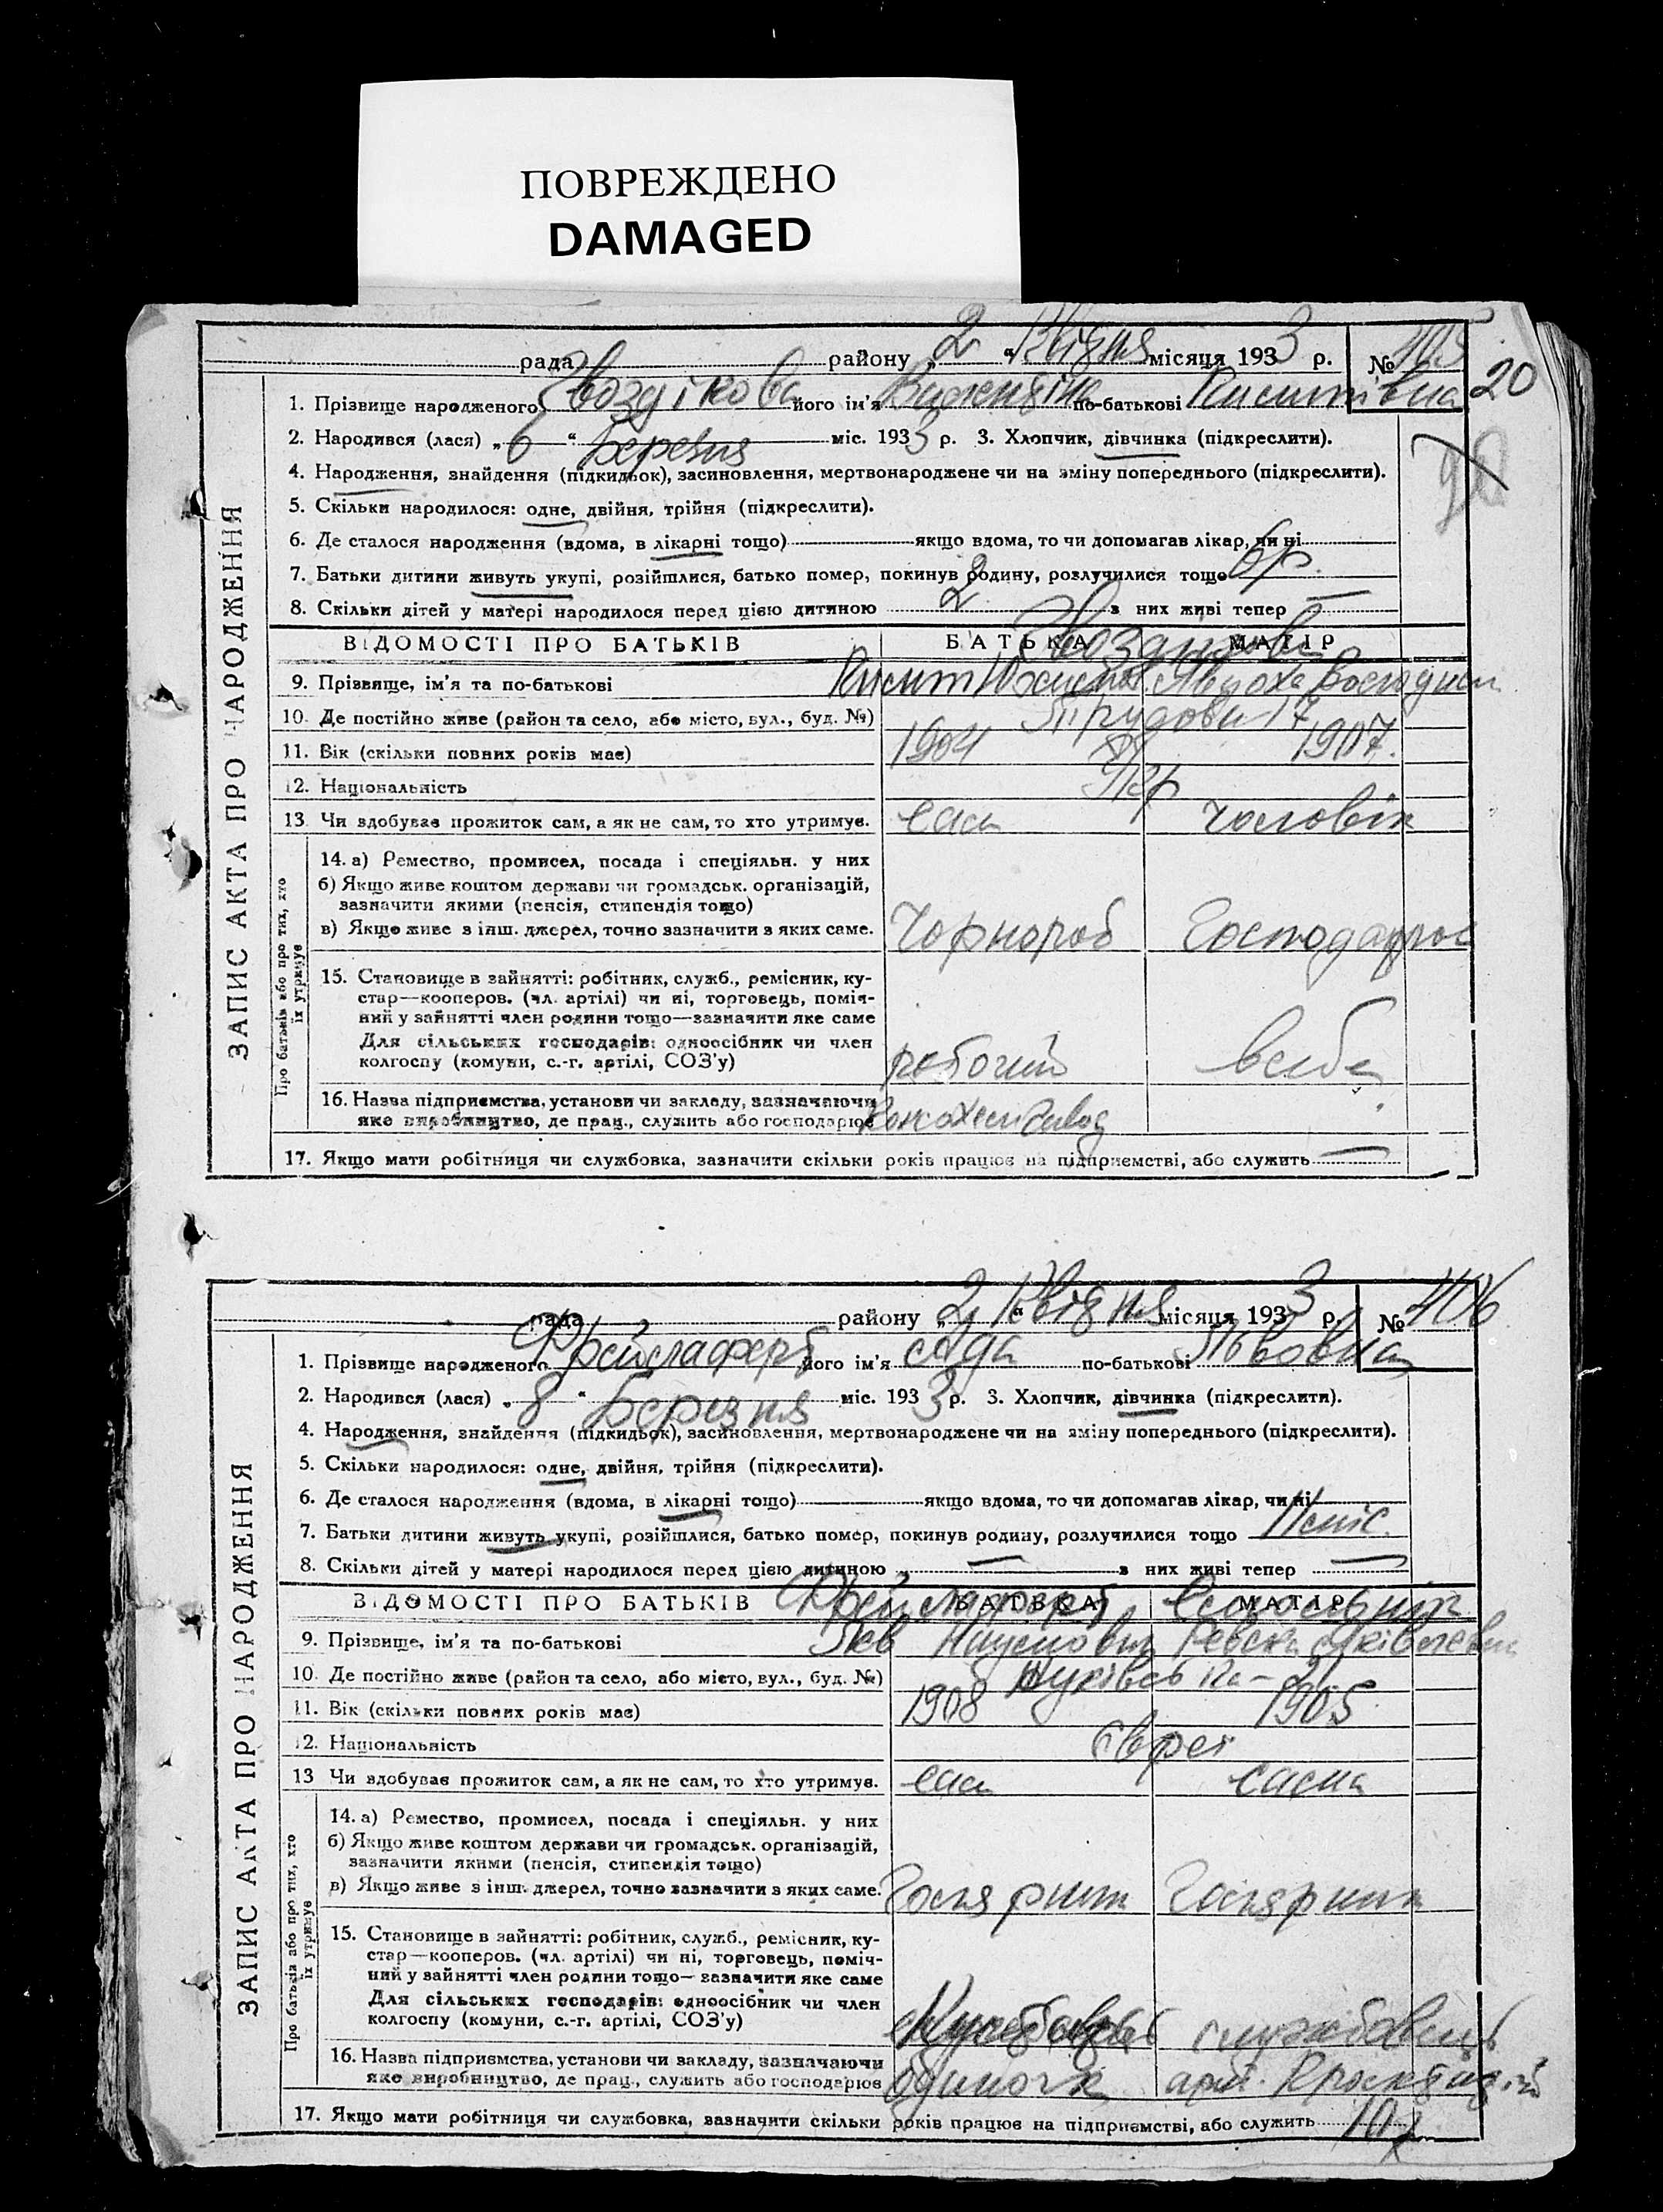 ПОВРЕЖДЕНО
DAMAGED
рада району „2“ Квітня місяця 1933 р. № 405
20
1. Прізвище народженого Гвоздікова його ім'я Валентіна по-батькові
2. Народився (лася) „6“ Березня міс. 1933 р. 3. Хлопчик, дівчинка (підкреслити).
4. Народження, знайдення (підкидьок), засиновлення, мертвонароджене чи на зміну попереднього (підкреслити).
5. Скільки народилося: одне, двійня, трійня (підкреслити).
6. Де сталося народження (вдома, в лікарні тощо) якщо вдома, то чи допомагав лікар, чи ні
7. Батьки дитини живуть укупі, розійшлися, батько помер, покинув родину, розлучилися тощо
8. Скільки дітей у матері народилося перед цією дитиною 2 з них живі тепер —
ВІДОМОСТІ ПРО БАТЬКІВ БАТЬКА МАТІР
9. Прізвище, ім'я та по-батькові
10. Де постійно живе (район та село, або місто, вул., буд. №) Трудова 17
11. Вік (скільки повних років має) 1904 1907
12. Національність Укр
13. Чи здобував прожиток сам, а як не сам, то хто утримує. сам чоловік
ЗАПИС АКТА ПРО НАРОДЖЕННЯ
Про батьків або про тих, хто їх утримує
14. а) Ремество, промисел, посада і спеціяльн. у них
б) Якщо живе коштом держави чи громадськ. організацій,
зазначити якими (пенсія, стипендія тощо)
в) Якщо живе з інш. джерел, точно зазначити з яких саме. Чорнороб Господарює
15. Становище в зайнятті: робітник, служб., ремісник, ку-
стар—кооперов. (чл. артілі) чи ні, торговець, поміч-
ний у зайнятті член родини тощо—зазначити яке саме
Для сільських господарів: одноосібник чи член
колгоспу (комуни, с.-г. артілі, СОЗ'у) робочий в себе
16. Назва підприємства, установи чи закладу, зазначаючи
яке виробництво, де прац., служить або господарює
17. Якщо мати робітниця чи службовка, зазначити скільки років працює на підприємстві, або служить —
рада району „2“ Квітня місяця 1933 р. № 406
1. Прізвище народженого його ім'я Ада по-батькові Львовна
2. Народився (лася) „8“ Березня міс. 1933 р. 3. Хлопчик, дівчинка (підкреслити).
4. Народження, знайдення (підкидьок), засиновлення, мертвонароджене чи на зміну попереднього (підкреслити).
5. Скільки народилося: одне, двійня, трійня (підкреслити).
6. Де сталося народження (вдома, в лікарні тощо) якщо вдома, то чи допомагав лікар, чи ні
7. Батьки дитини живуть укупі, розійшлися, батько помер, покинув родину, розлучилися тощо
8. Скільки дітей у матері народилося перед цією дитиною — з них живі тепер —
ВІДОМОСТІ ПРО БАТЬКІВ БАТЬКА МАТІР
9. Прізвище, ім'я та по-батькові Лев
10. Де постійно живе (район та село, або місто, вул., буд. №)
11. Вік (скільки повних років має) 1908 1905
12. Національність Єврей
13 Чи здобував прожиток сам, а як не сам, то хто утримує. сам сама
ЗАПИС АКТА ПРО НАРОДЖЕННЯ
Про батьків або про тих, хто їх утримує
14. а) Ремество, промисел, посада і спеціяльн. у них
б) Якщо живе коштом держави чи громадськ. організацій,
зазначити якими (пенсія, стипендія тощо)
в) Якщо живе з інш. джерел, точно зазначити з яких саме.
15. Становище в зайнятті: робітник, служб., ремісник, ку-
стар—кооперов. (чл. артілі) чи ні, торговець, поміч-
ний у зайнятті член родини тощо—зазначити яке саме
Для сільських господарів: одноосібник чи член
колгоспу (комуни, с.-г. артілі, СОЗ'у) службовець
16. Назва підприємства, установи чи закладу, зазначаючи
яке виробництво, де прац., служить або господарює одиночка арт.
17. Якщо мати робітниця чи службовка, зазначити скільки років працює на підприємстві, або служить 10